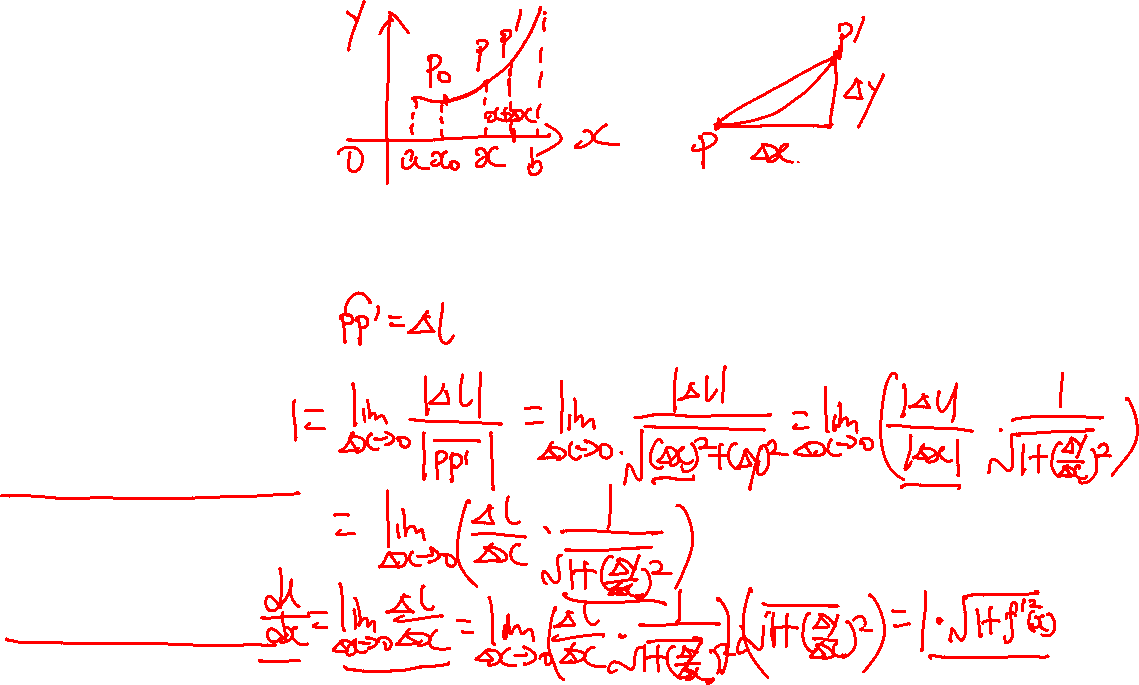 y P₀ P P' P'
Δy
x+Δx
O a x₀ x b x P Δx.
PP' = Δl
1 = lim_{Δx→0} |Δl| / |PP'| = lim_{Δx→0} |Δl| / √((Δx)²+(Δy)²) = lim_{Δx→0} (|Δl| / |Δx| · 1 / √(1+(Δy/Δx)²))
= lim_{Δx→0} (Δl/Δx · 1 / √(1+(Δy/Δx)²))
dl/dx = lim_{Δx→0} Δl/Δx = lim_{Δx→0} (Δl/Δx · 1 / √(1+(Δy/Δx)²)) · (√(1+(Δy/Δx)²)) = 1 · √(1+f'²(x))